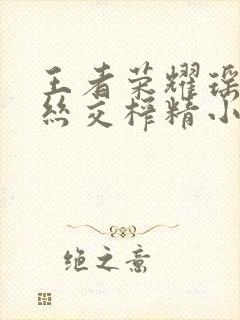 王者荣耀瑶
丝交榨精小
绝之意